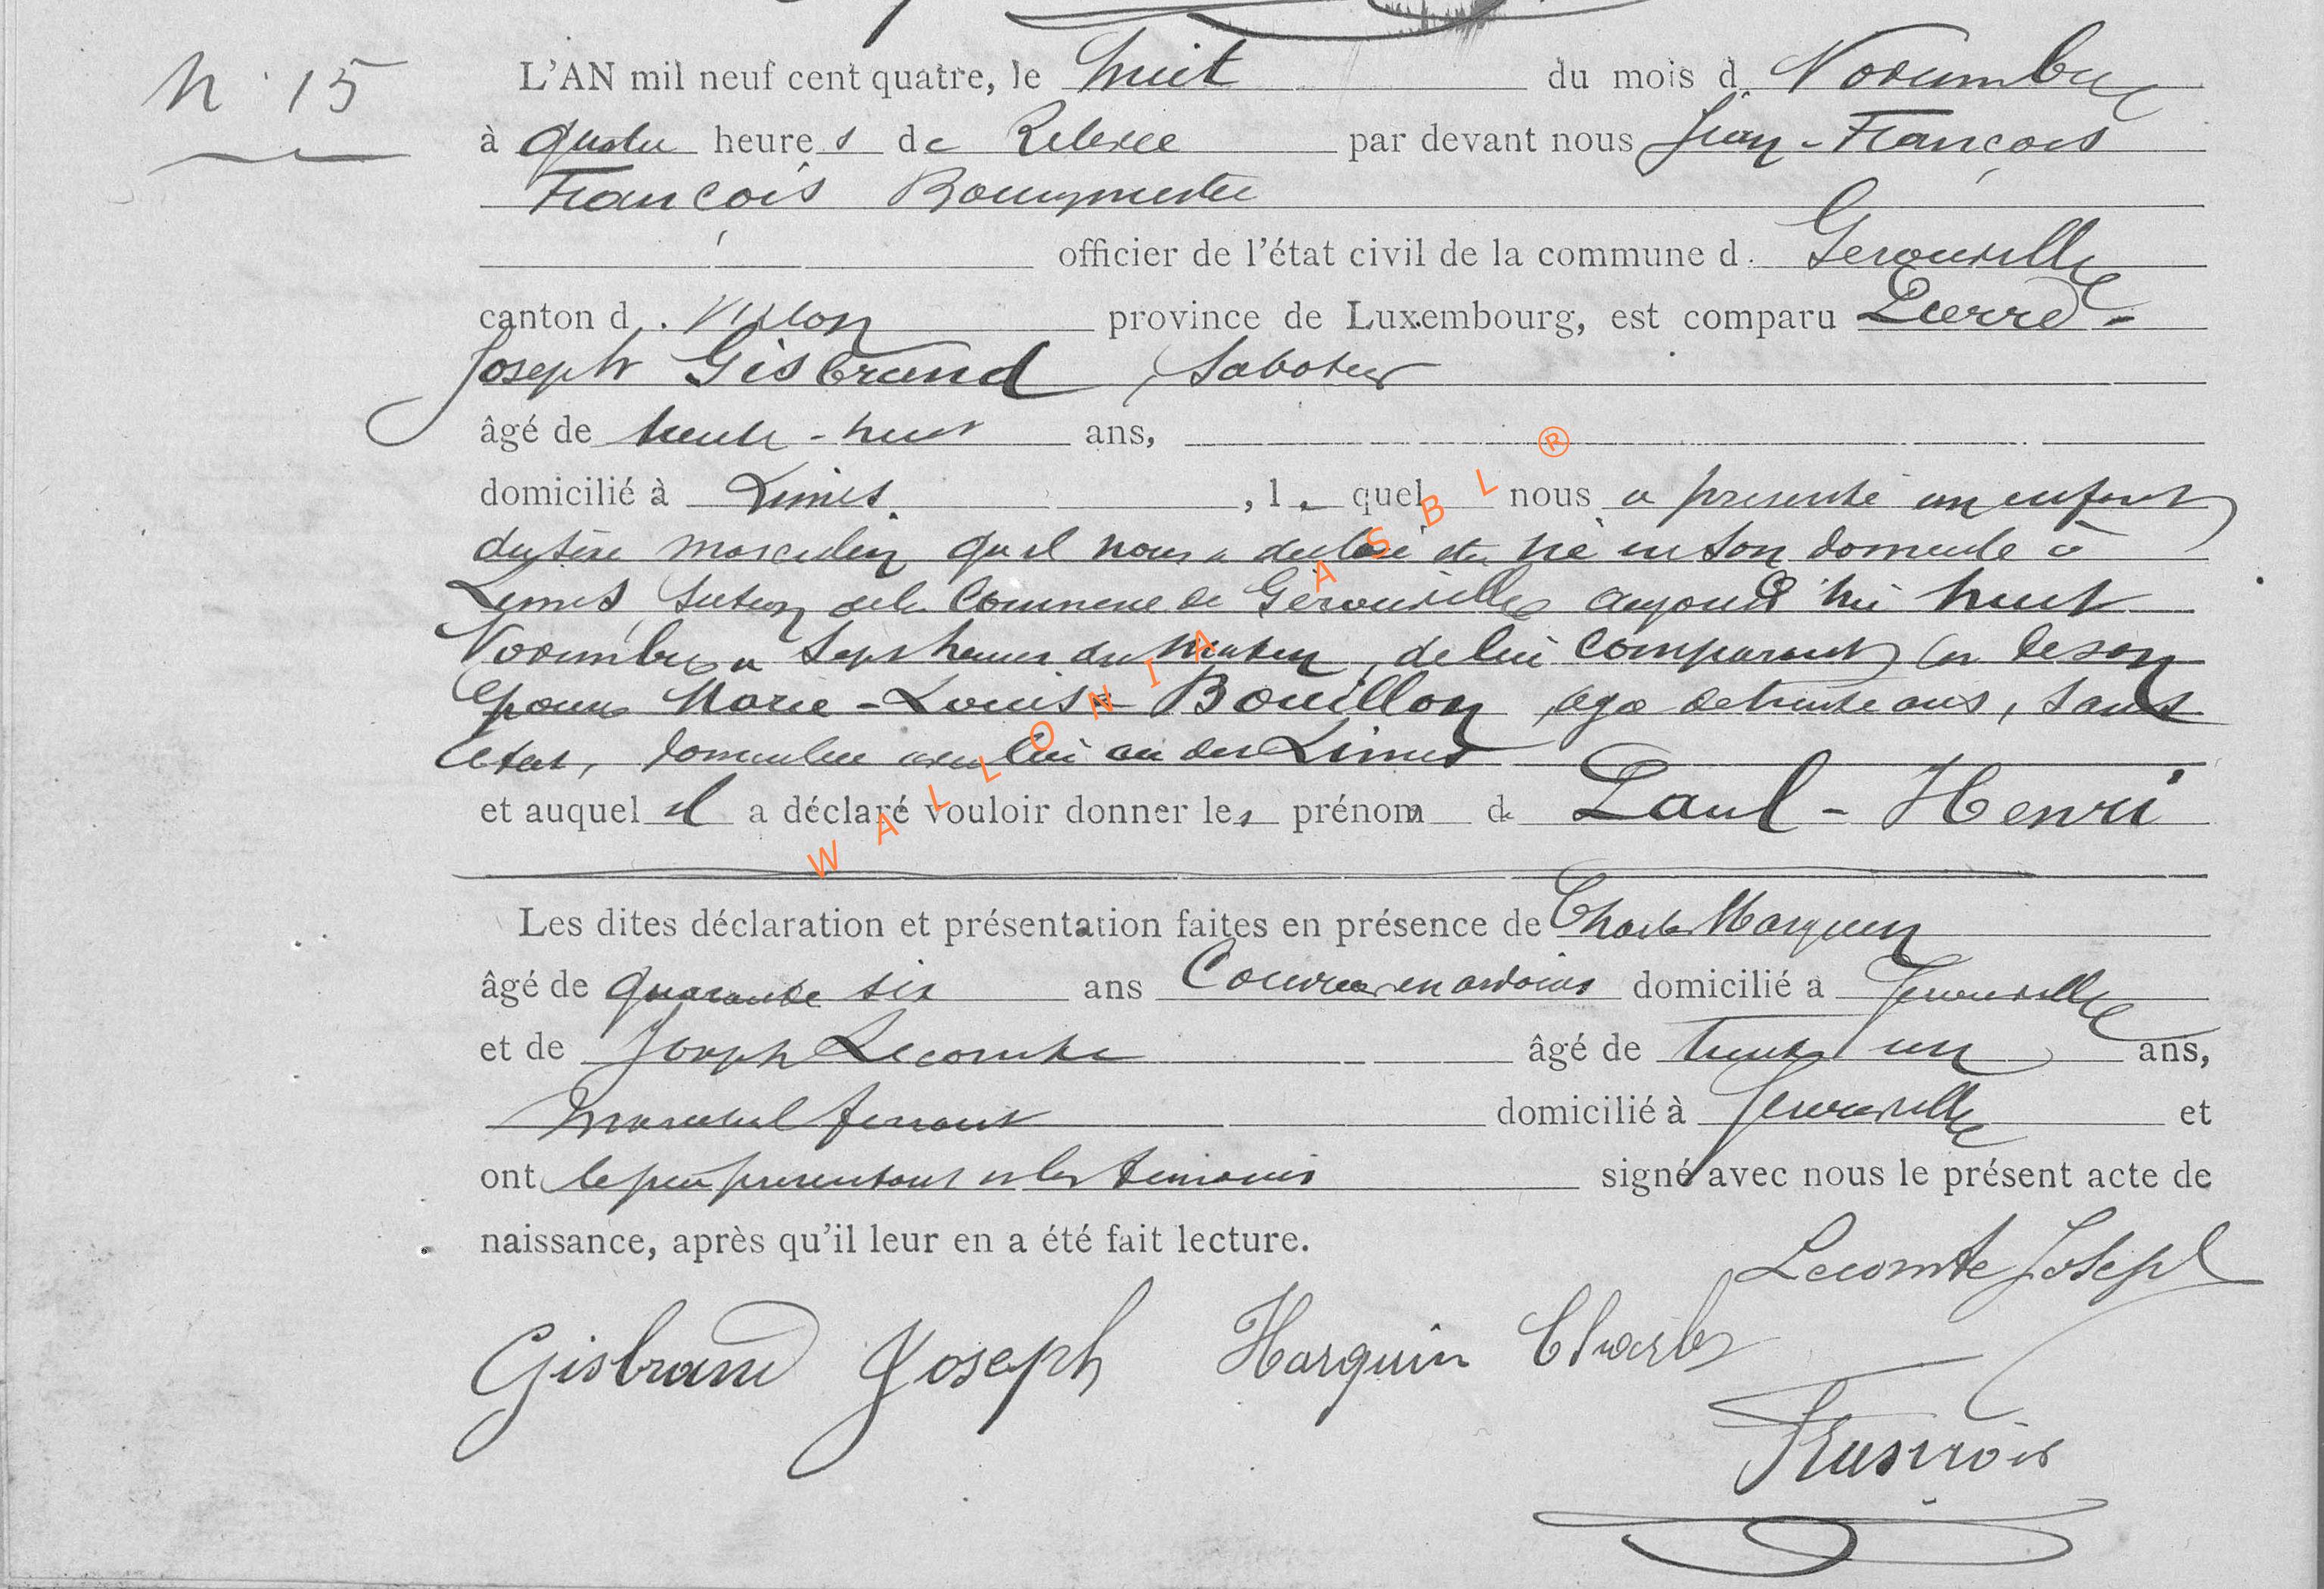 N° 15
L'AN mil neuf cent quatre, le huit du mois d. Novembre
à quatre heures de Relevée par devant nous Jean-François
François Bourgmestre
officier de l'état civil de la commune d. Gerouville
canton d. Virton province de Luxembourg, est comparu Pierre-
Joseph Gisbrand, Saboteur
âgé de trente-huit ans,
domicilié à Limes. , le quel nous a présenté un enfant
du sexe masculin qu'il nous a déclaré être né en son domicile à
Limes, section de la Commune de Gérouville aujourd'hui huit
Novembre a sept heures du matin, de lui comparant et de son
épouse Marie-Louise Bouillon, age de trente ans, sans
état, domiciliée avec lui au dit Limes
et auquel il a déclaré vouloir donner les prénom de Paul-Henri
Les dites déclaration et présentation faites en présence de Charles Harquin
âgé de quarante six ans Couvreur en ardoises domicilié à Gerouville
et de Joseph Lecomte âgé de trente un ans,
marechal ferrant domicilié à Gerouville et
ont le père présentant et les témoins signé avec nous le présent acte de
naissance, après qu'il leur en a été fait lecture.
Lecomte Joseph
Gisbrand Joseph Harquin Charles
WALLONIA ASBL ®